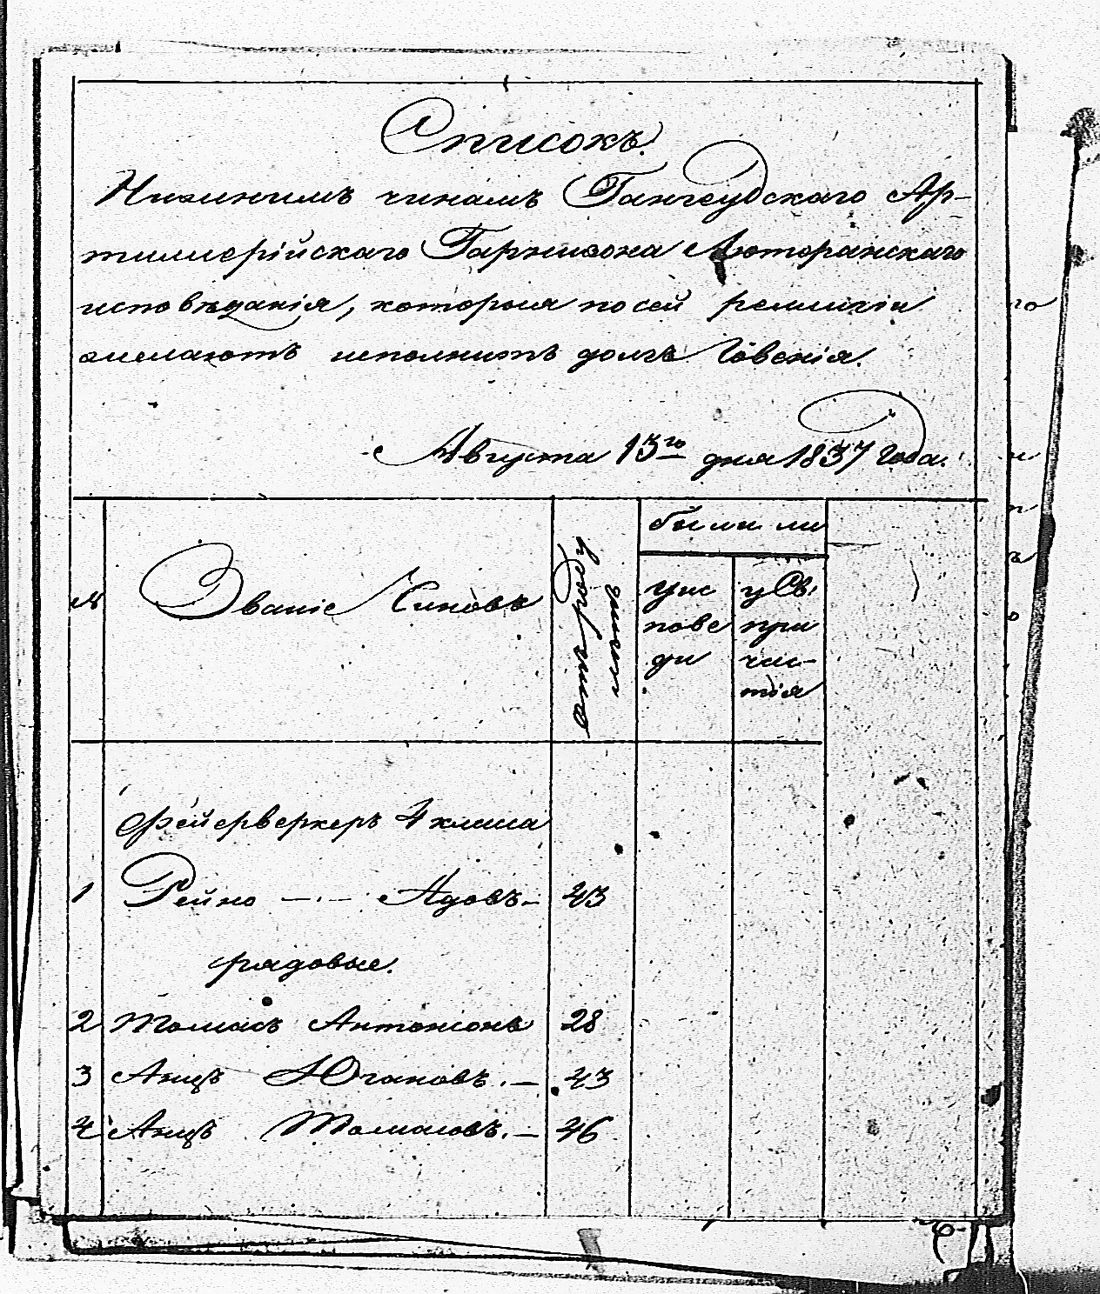 Списокъ.
Нижнимъ чинамъ Гангеудскаго Ар-
тиллерійскаго Гарнизона Лютеранскаго
исповѣданія, которыя по сей религіи
желаютъ исполнить долгъ Говенія.
Августа 13го дня 1837 Года.
№
Званіе Чиновъ
отъ роду
лѣтъ
были ли
у ис
пове
ди
у Св.
при
час-
тія
Фейерверкеръ 4 класа
1 Рейно — Адовъ — 43
рядовые.
2 Томасъ Антонсонъ 28
3 Анцъ Югановъ. — 43
4 Анцъ Томасовъ. — 46